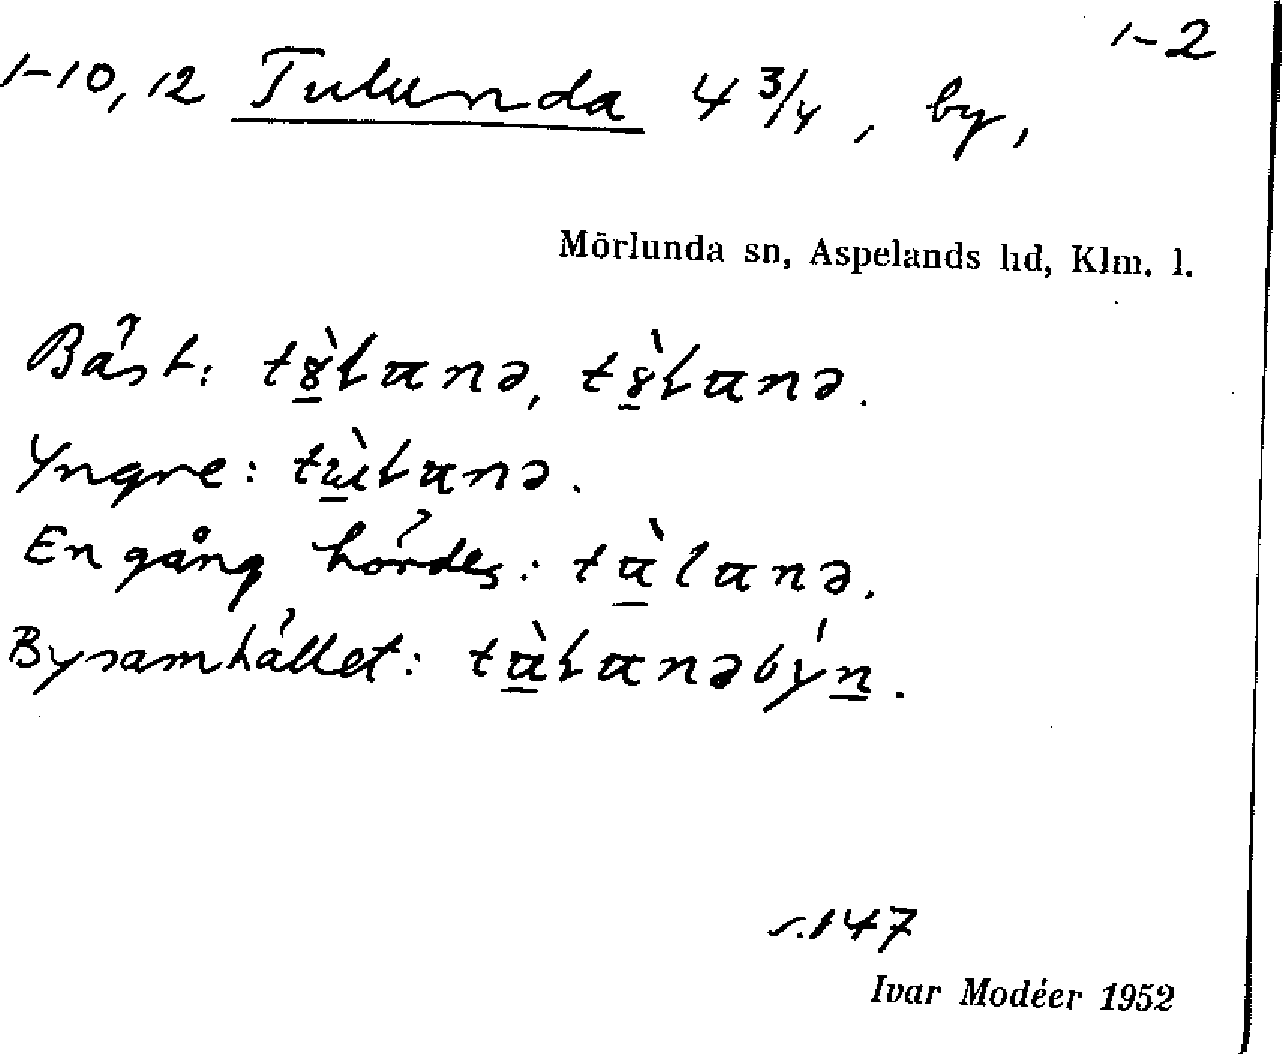 1-2
1-10, 12 Tulunda 4 3/4, by,
Mörlunda sn, Aspelands hd, Klm. l.
Bäst: tȣ̀ɫɑnə, tȣ̀ɫɑnə.
Yngre: tùɫɑnə.
En gång hördes: tɑ̀lɑnə.
Bysamhället: tɑ̀ɫɑnəbýn.
s. 147
Ivar Modéer 1952